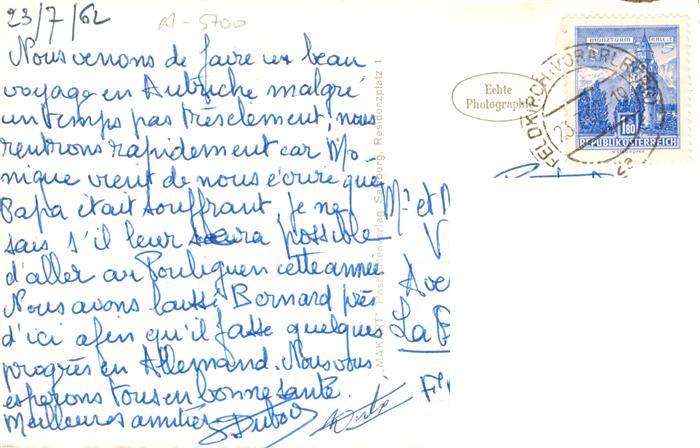 23/7/62
A-5700
Nous venons de faire un beau
voyage en Autriche malgré
un temps pas très clement, nous
rentrons rapidement car Mo-
nique vient de nous écrire que
Papa était souffrant, je ne
sais s'il leur sera possible
d'aller au Pouliguen cette année
Nous avons laissé Bernard près
d'ici afin qu'il fasse quelques
progrès en Allemand. Nous vous
esperons tous en bonne santé.
Meilleures amitiés
"MAKART" Postkartenverlag Salzburg, Residenzplatz 1
Echte
Photographie
MÜNZTURM HALL I. T.
1.80
REPUBLIK ÖSTERREICH
FELDKIRCH (VORARLBERG)
23
Mr et M
V
Ave
La B